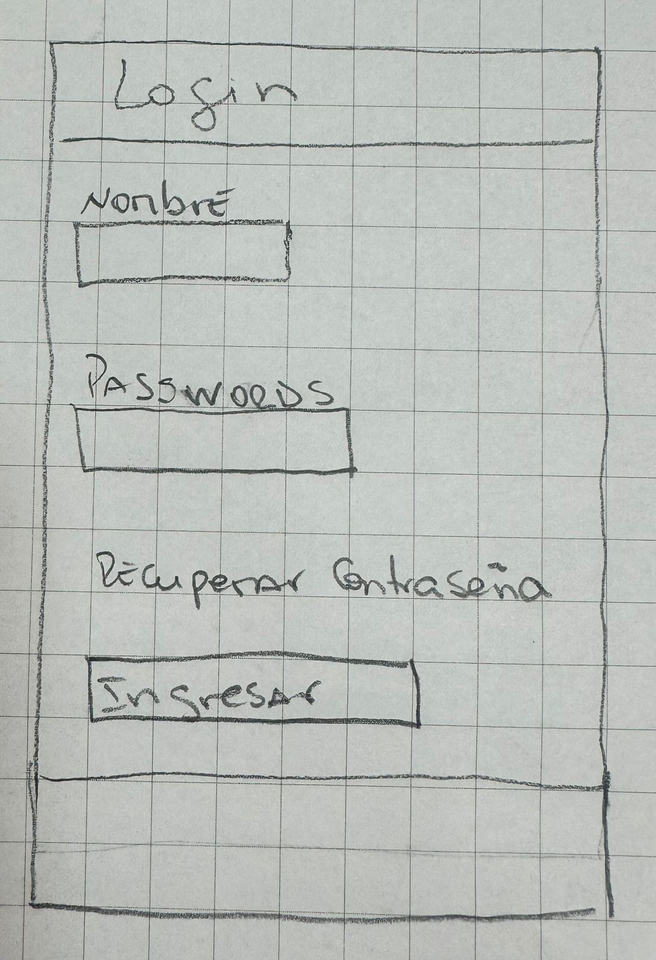 Login
Nombre
Passwords
Recuperar Contraseña
Ingresar